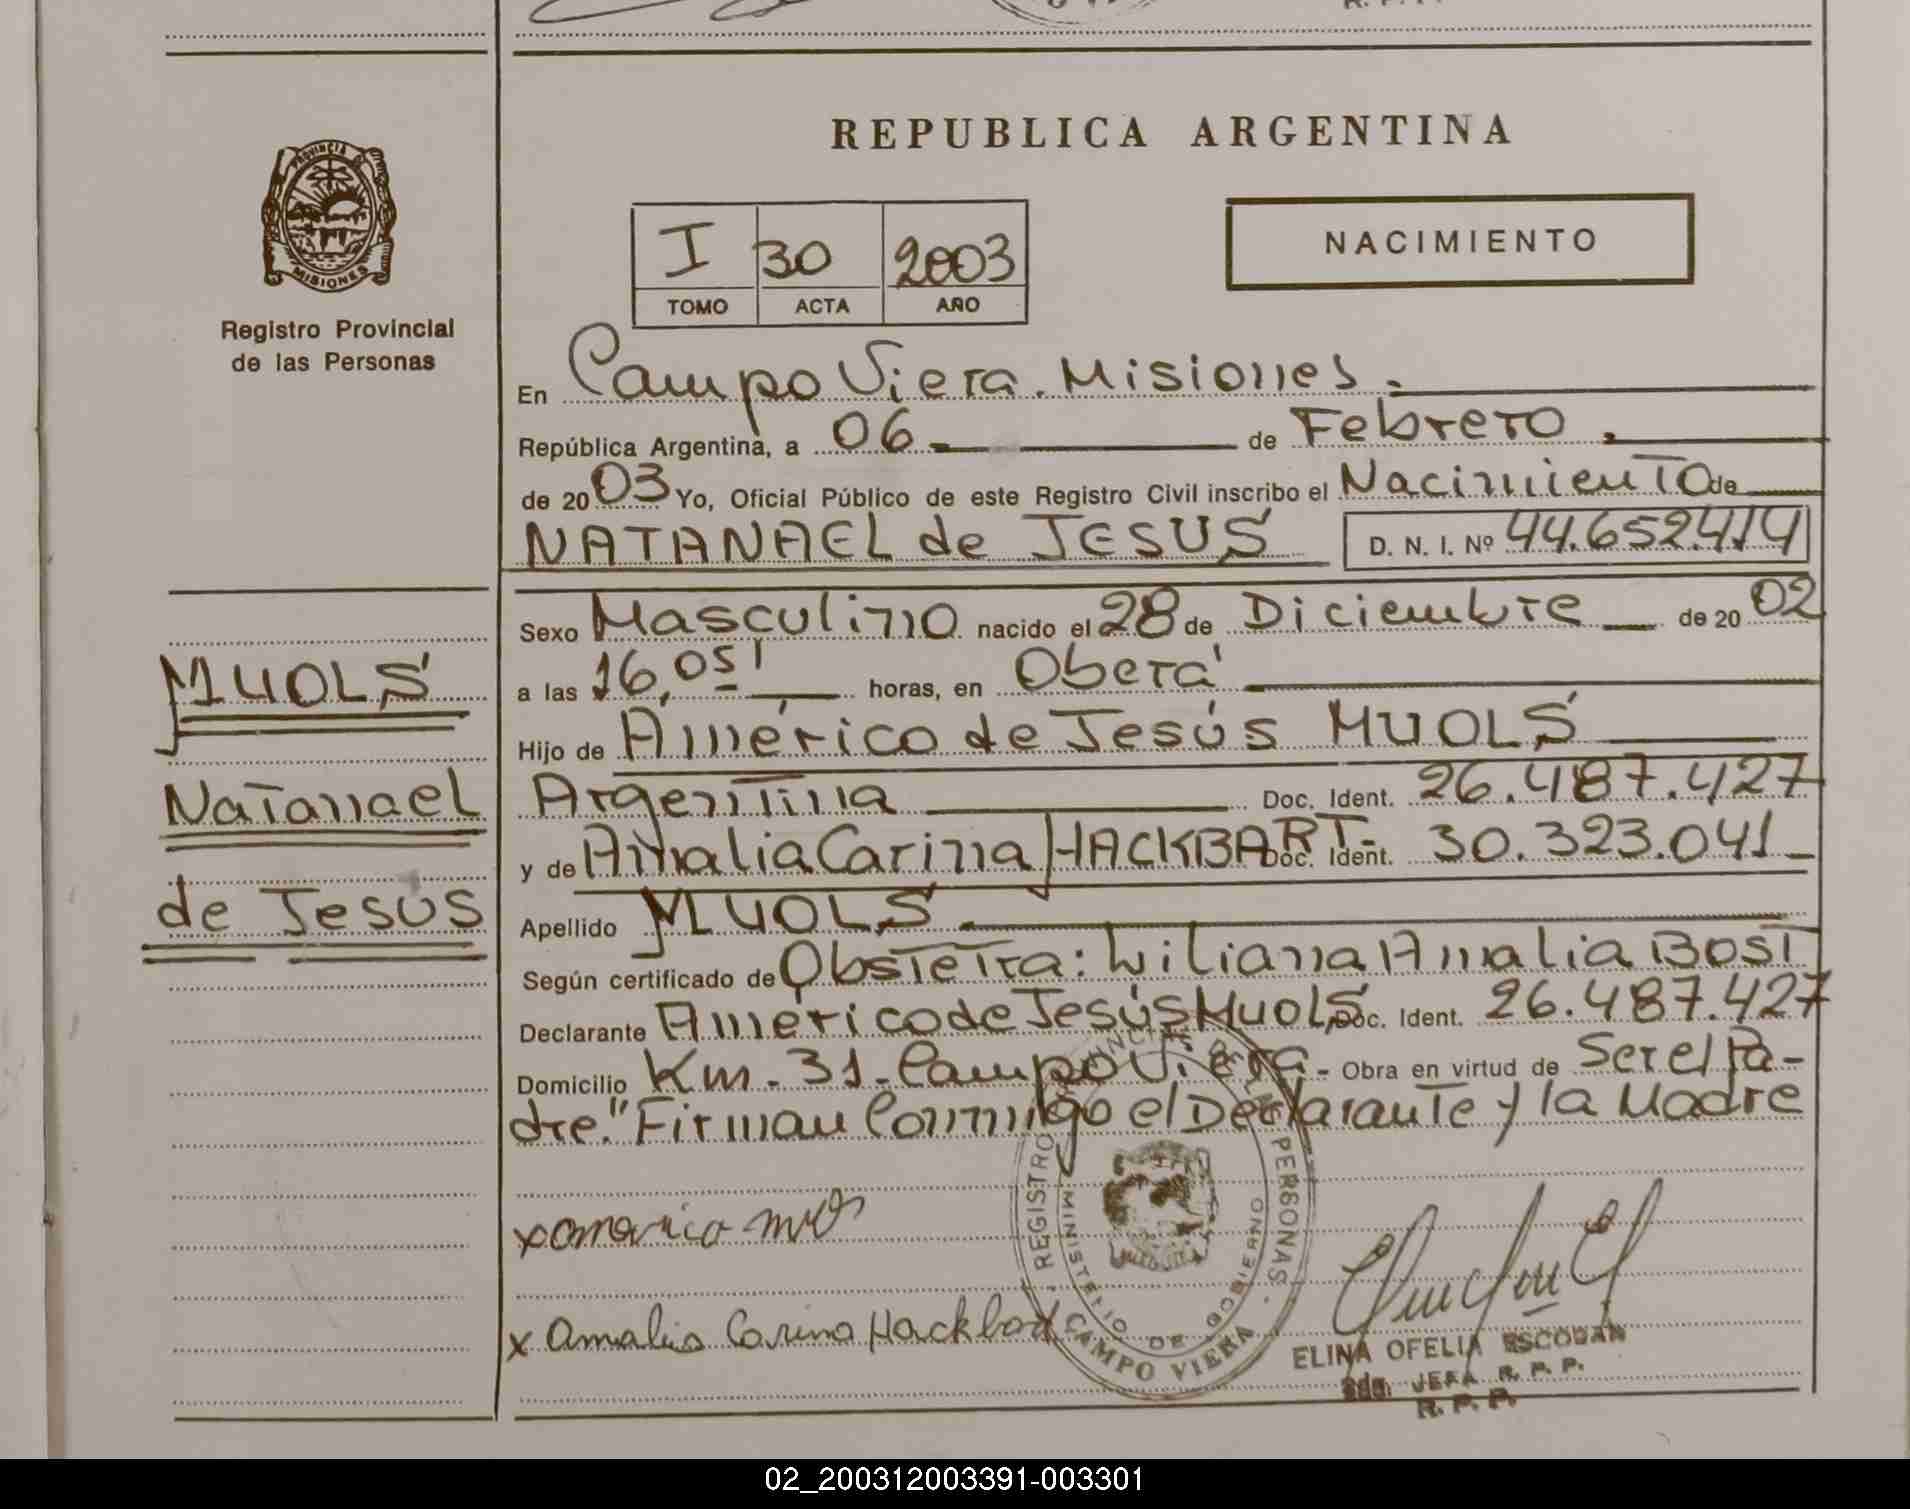 REPUBLICA ARGENTINA
PROVINCIA DE
MISIONES
Registro Provincial
de las Personas
I 30 2003
TOMO ACTA AÑO
NACIMIENTO
En Campo Viera. Misiones.
República Argentina, a 06 de Febrero.
de 2003 Yo, Oficial Público de este Registro Civil inscribo el Nacimiento de
NATANAEL de JESUS D. N. I. Nº 44.652.414
Sexo Masculino nacido el 28 de Diciembre de 2002
a las 16,05' horas, en Oberá
Hijo de Américo de Jesús MUOLS
Argentina Doc. Ident. 26.487.427
y de Amalia Carina HACKBART- Doc. Ident. 30.323.041
Apellido MUOLS
Según certificado de Obstetra: Liliana Amalia Bost
Declarante Américo de Jesús Muols Doc. Ident. 26.487.427
Domicilio Km. 31- Campo Viera- Obra en virtud de Ser el Pa-
dre." Firman Conmigo el Declarante y la Madre
MUOLS
Natanael
de Jesús
x americo
x Amalia Carina Hackbart
REGISTRO PERSONAS
MINISTERIO DE GOBIERNO
CAMPO VIERA
ELINA OFELIA ESCOBAR
JEFA R. P. P.
R. P. P.
02_200312003391-003301